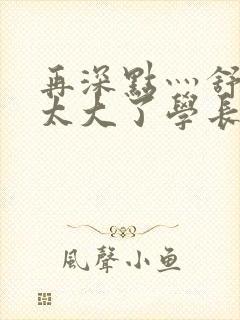 再深點灬舒
太大了學長
風聲小魚